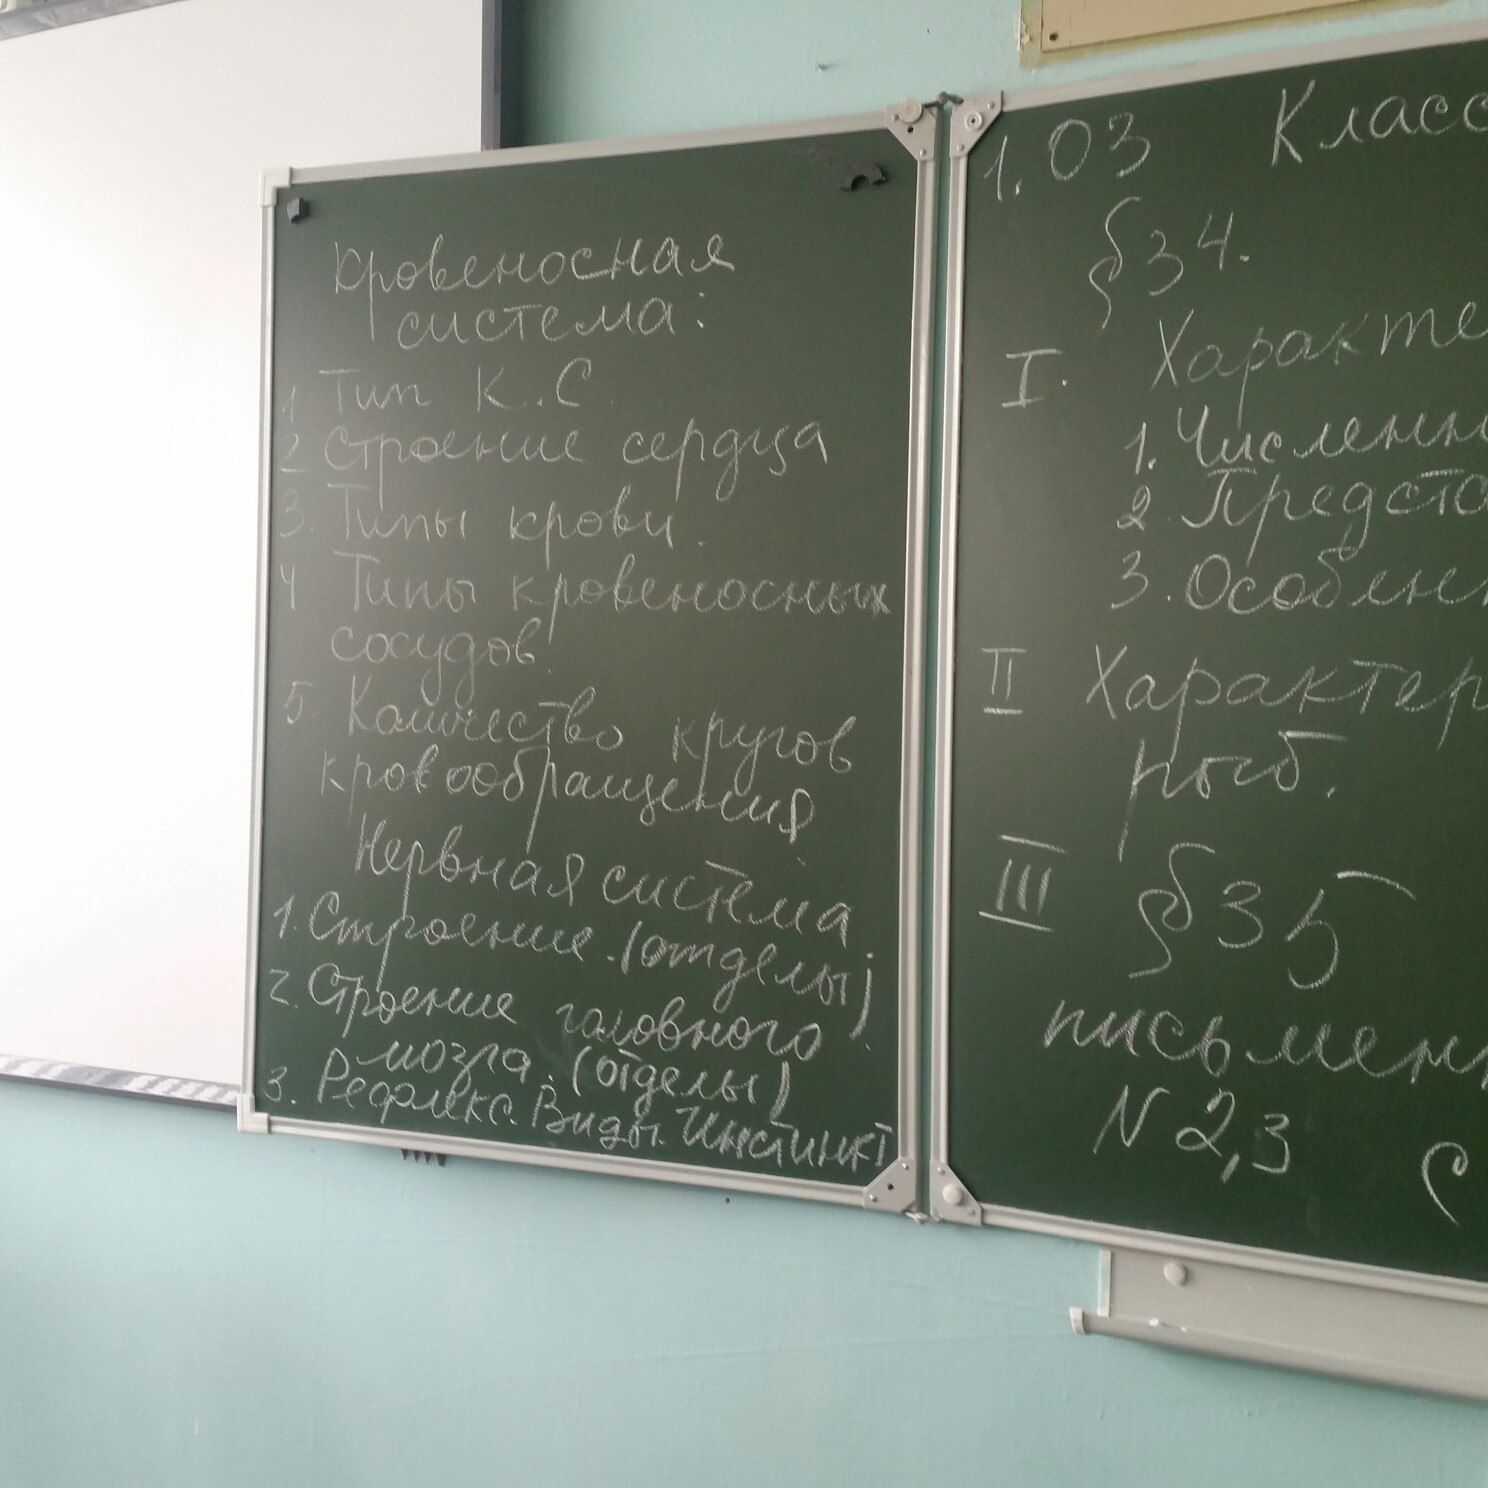 Кровеносная
система:
1 Тип К.С.
2 Строение сердца
3. Типы крови.
4 Типы кровеносных
сосудов.
5 Количество кругов
кровообращения
Нервная система
1. Строение. (отделы)
2. Строение головного
мозга. (отделы)
3. Рефлекс. Виды. Инстинкт
1.03 Класс
§34.
I. Характе
1. Численн
2. Предста
3. Особенн
II Характер
рыб.
III §35
письменн
N 2,3 С